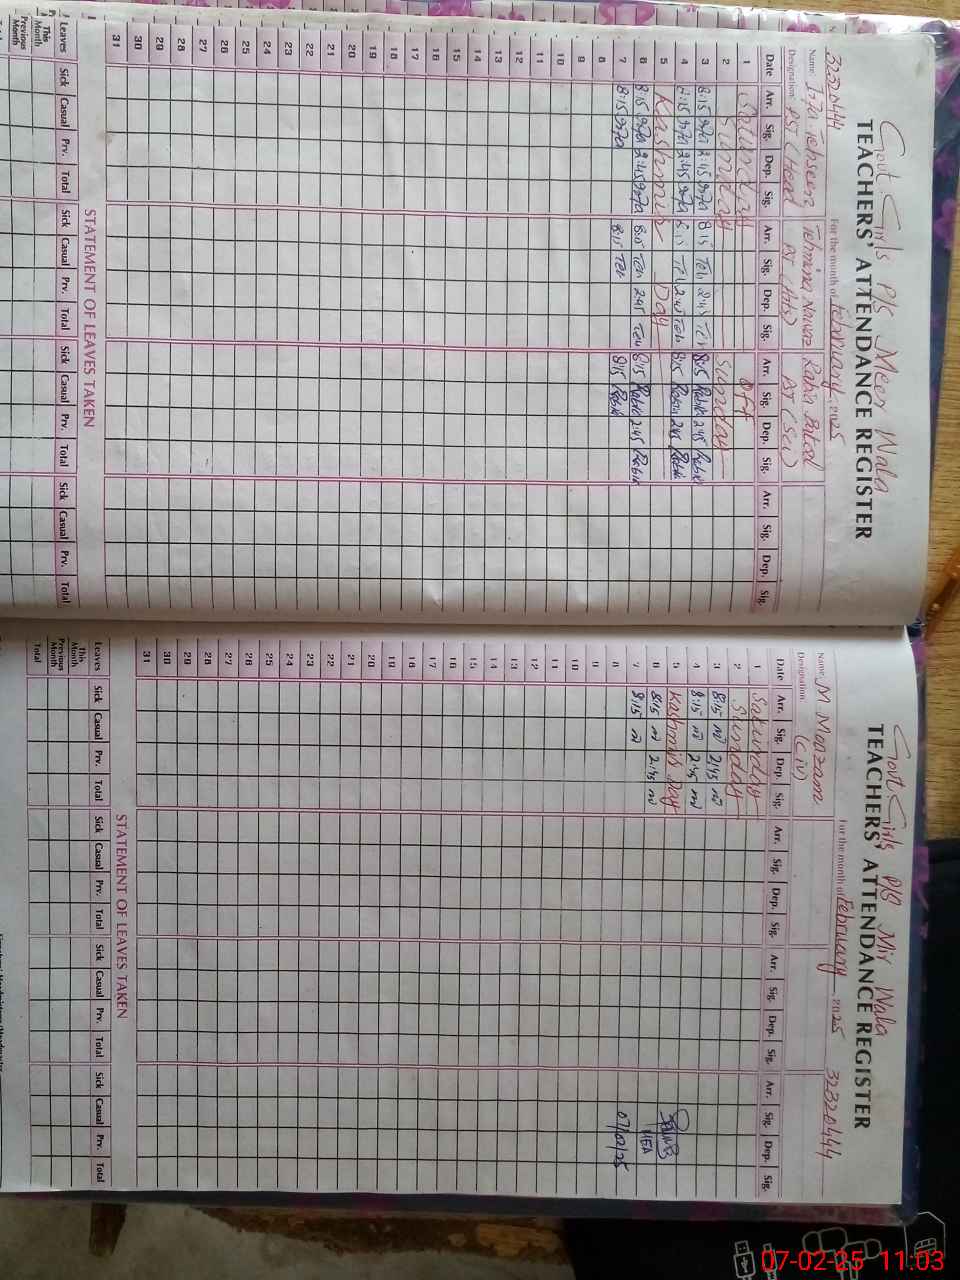 Govt Girls P/S Meer Wala
TEACHERS' ATTENDANCE REGISTER
32320444
For the month of February 2025
Name: Tehmina Nawaz Rabia Batool
Designation: PST (Head PST (Arts) PST (Sci)
Date Arr. Sig. Dep. Sig. Arr. Sig. Dep. Sig. Arr. Sig. Dep. Sig. Arr. Sig. Dep. Sig.
1 Saturday Off
2 Sunday Sunday
3 8:15 2:45 8:15 Teh 2:45 Teh 8:15 Rabia 2:45 Rabia
4 8:15 2:45 8:15 Teh 2:45 Teh 8:15 Rabia 2:45 Rabia
5 Kashmir Day
6 8:15 2:45 8:15 Teh 2:45 Teh 8:15 Rabia 2:45 Rabia
7 8:15 8:15 Teh 8:15 Rabia
8
9
10
11
12
13
14
15
16
17
18
19
20
21
22
23
24
25
26
27
28
29
30
31
STATEMENT OF LEAVES TAKEN
Leaves Sick Casual Prv. Total Sick Casual Prv. Total Sick Casual Prv. Total Sick Casual Prv. Total
This Month
Previous Month
Govt Girls P/S Mir Wala
TEACHERS' ATTENDANCE REGISTER
For the month of February 2025 32320444
Name: M Moazam
Designation (Civ)
Date Arr. Sig. Dep. Sig. Arr. Sig. Dep. Sig. Arr. Sig. Dep. Sig. Arr. Sig. Dep. Sig.
1 Saturday
2 Sunday
3 8:15 m 2:45 m
4 8:15 m 2:45 m
5 Kashmir Day
6 8:15 m 2:45 m MEA
7 8:15 m
8 07/02/25
9
10
11
12
13
14
15
16
17
18
19
20
21
22
23
24
25
26
27
28
29
30
31
STATEMENT OF LEAVES TAKEN
Leaves Sick Casual Prv. Total Sick Casual Prv. Total Sick Casual Prv. Total Sick Casual Prv. Total
This Month
Previous Month
Total
07-02-25 11:03